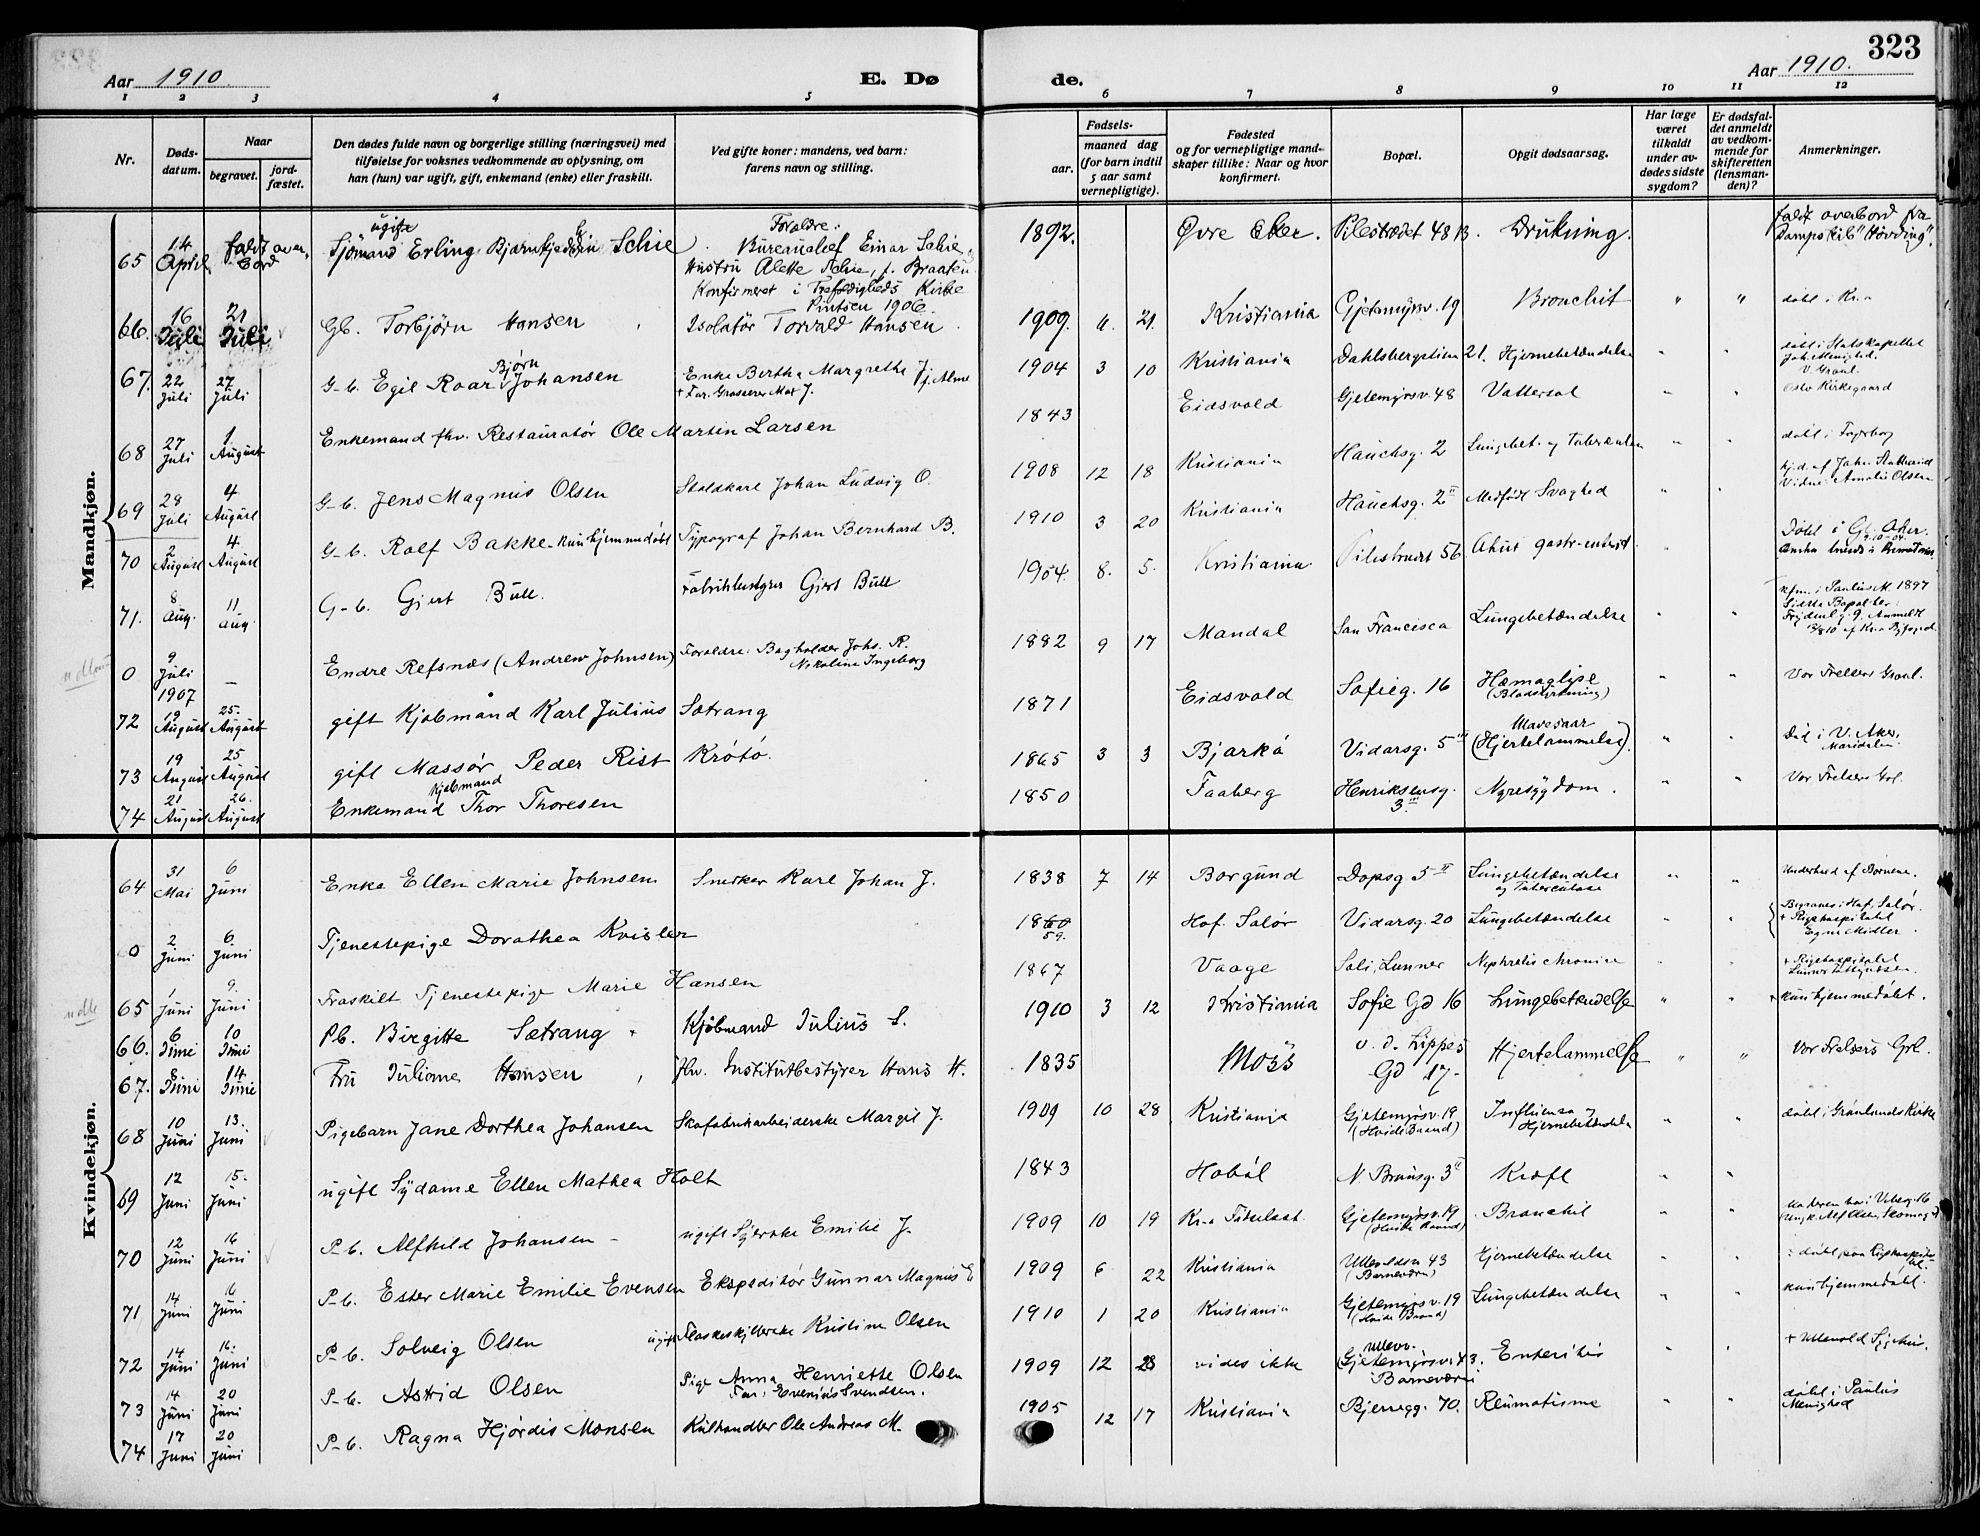 323
Aar 1910. E. Dø de. Aar 1910.
1 2 3 4 5 6 7 8 9 10 11 12
Nr.
Døds-
datum.
Naar
begravet.
jord-
fæstet.
Den dødes fulde navn og borgerlige stilling (næringsvei) med
tilføielse for voksnes vedkommende av oplysning, om
han (hun) var ugift, gift, enkemand (enke) eller fraskilt.
Ved gifte koner: mandens, ved barn:
farens navn og stilling.
Fødsels-
aar.
maaned dag
(for barn indtil
5 aar samt
vernepligtige).
Fødested
og for vernepligtige mand-
skaper tillike: Naar og hvor
konfirmert.
Bopæl.
Opgit dødsaarsag.
Har læge
været
tilkaldt
under av-
dødes sidste
sygdom?
Er dødsfal-
det anmeldt
av vedkom-
mende for
skifteretten
(lensman-
den)?
Anmerkninger.
Mandkjøn.
65 14 April faldt over bord ugift Sjømand Erling Schie Forældre: Bureauchef Einar Schie Hustru Alette Schie, f. Braaten Konfirmeret i Trefoldigheds Kirke 1906. 1892. Øvre Eker. Pilestrædet 48 B. Drukning. faldt overbord fra Dampskib "Høvding".
66. 16 Juli 21 Juli Gb. Torbjørn Hansen Isolatør Torvald Hansen 1909. 6. 21. Kristiania Gjetemyrsv. 19 Bronchit " " døbt i Kr.a
67. 22 Juli 27 Juli G-b. Egil Roar Bjørn Johansen Enke Bertha Margrethe J. f. Alme + Far. Grosserer Max J. 1904 3 10 Kristiania Dahlsbergstien 21. Hjernebetændelse " " døbt i Slotskapellet Joh. Menighed. V. Gravl.
68 27 Juli 1 August Enkemand fhv. Restauratør Ole Martin Larsen 1843 Eidsvold Gjetemyrsv. 48 Vattersot " " Oslo Kirkegaard
69 28 Juli 4 August G-b. Jens Magnus Olsen Staldkarl Johan Ludvig O. 1908 12 18 Kristiania Hauchsg. 2 Lungebet. og Tuberculos " " døbt i Fagerborg
70 2 August 4 August G-b. Rolf Bakke - kun hjemmedøbt Typograf Johan Bernhard B. 1910 3 20 Kristiania Hauchsg. 2 II Medfødt Svaghed " " hj.d. af Johs. Vidne: Amalie Olsen
71. 8 Aug. 11 Aug. G-b. Gjert Bull. Gjert Bull 1904. 8. 5. Kristiania Pilestrædet 56. Akut gastr-enterit. " " Døbt i Gl. Aker.
0 9 Juli 1907 — Endre Refsnæs (Andrew Johnsen) Forældre: Bagholder Johs. R. Nikoline Ingeborg 1882 9 17 Mandal San Francisca Lungebetændelse " " Kfm. i Paulus M. 1897 Sidste Bopæl her: Frydenl.g. 9. Anmeldt
72 19 August 25. August gift Kjøbmand Karl Julius Sætrang 1871 Eidsvold Sofieg. 16 Hæmaglise (Blodstyrtning) " " Vor Frelsers Gravl.
73 19 August 25 August gift Massør Peder Rist Krøtø. 1865 3 3 Bjarkø Vidarsg. 5 III Mavesaar (Hjertelammelse). " " Død i V. Aker, Maridalen.
74 21 August 26. August Enkemand Kjøbmand Thor Thoresen 1850 Faaberg Henriksensg. 3 III Nyresygdom. " " Vor Frelsers Grl.
Kvindekjøn.
64 31 Mai 6 Juni Enke Ellen Marie Johnsen Snedker Karl Johan J. 1838 7 14 Borgund Dopsg 5 II Lungebetændelse og Tuberculose " " Underhold af Børnene.
0 2 Juni 6. Juni Tjenestepige Dorathea Kvisler 1860 59. Hof. Solør Vidarsg. 20 Lungebetændelse " " Begraves i Hof, Solør. + Rigshospitalet Egne Midler.
65 1 Juni 9. Juni Fraskilt Tjenestepige Marie Hansen 1867 Vaage Soli, Lunner Nephritis chronica " " + Rigshospitalet
66. 6 Juni 10 Juni Pb. Birgitte Sætrang Kjøbmand Julius S. 1910 3 12 Kristiania Sofie Gd 16 Lungebetændelse " " kun hjemmedøbt.
67. 8 Juni 14 Juni Fru Juliane Hansen fhv. Institutbestyrer Hans H. 1835 Moss v. d. Lippes Gd 17 Hjertelammelse " " Vor Frelsers Grl.
68 10 Juni 13. Juni Pigebarn Jane Dorthea Johansen Skofabrikarbeiderske Margit J. 1909 10 28 Kristiania Gjetemyrsv. 19 (Hvide Baand) Influensa og Hjernebetændelse " " døbt i Grønlands Kirke
69 12 Juni 15. Juni ugift Sydame Ellen Mathea Holt 1843 Hobøl N. Brunsg. 3 II Kræft " "
70 12 Juni 16 Juni P-b. Alfhild Johansen - ugift Syerske Emilie J. 1909 10 19 Kr.a Fødselsst. Gjetemyrsv. 19 (Hvide Baand) Bronchit " "
71 14 Juni 16 Juni P-b. Ester Marie Emilie Evensen Ekspeditør Gunnar Magnus E 1909 6 22 Kristiania Ullevoldsv 43 (Barneværn) Hjernebetændelse " " døbt paa Rigshospitalet.
72 14 Juni 16. Juni P-b. Solveig Olsen ugift Flaskeskyllerske Kristine Olsen 1910 1 20 Kristiania Gjetemyrsv. 19 (Hvide Baand) Lungebetændelse " " kun hjemmedøbt.
73 14 Juni 20 Juni P-b. Astrid Olsen Pige Anna Henriette Olsen Far: Evenius Svendsen. 1909 12 28 vides ikke Ullevv. Gjetemyrsv. 43. i Barneværn Enteritis " " + Ullevold Sygehus.
74 17 Juni 20 Juni P-b. Ragna Hjørdis Monsen Kulhandler Ole Andreas M. 1905 12 17 Kristiania Bjerregg. 70. Reumatisme " " døbt i Paulus Menighed